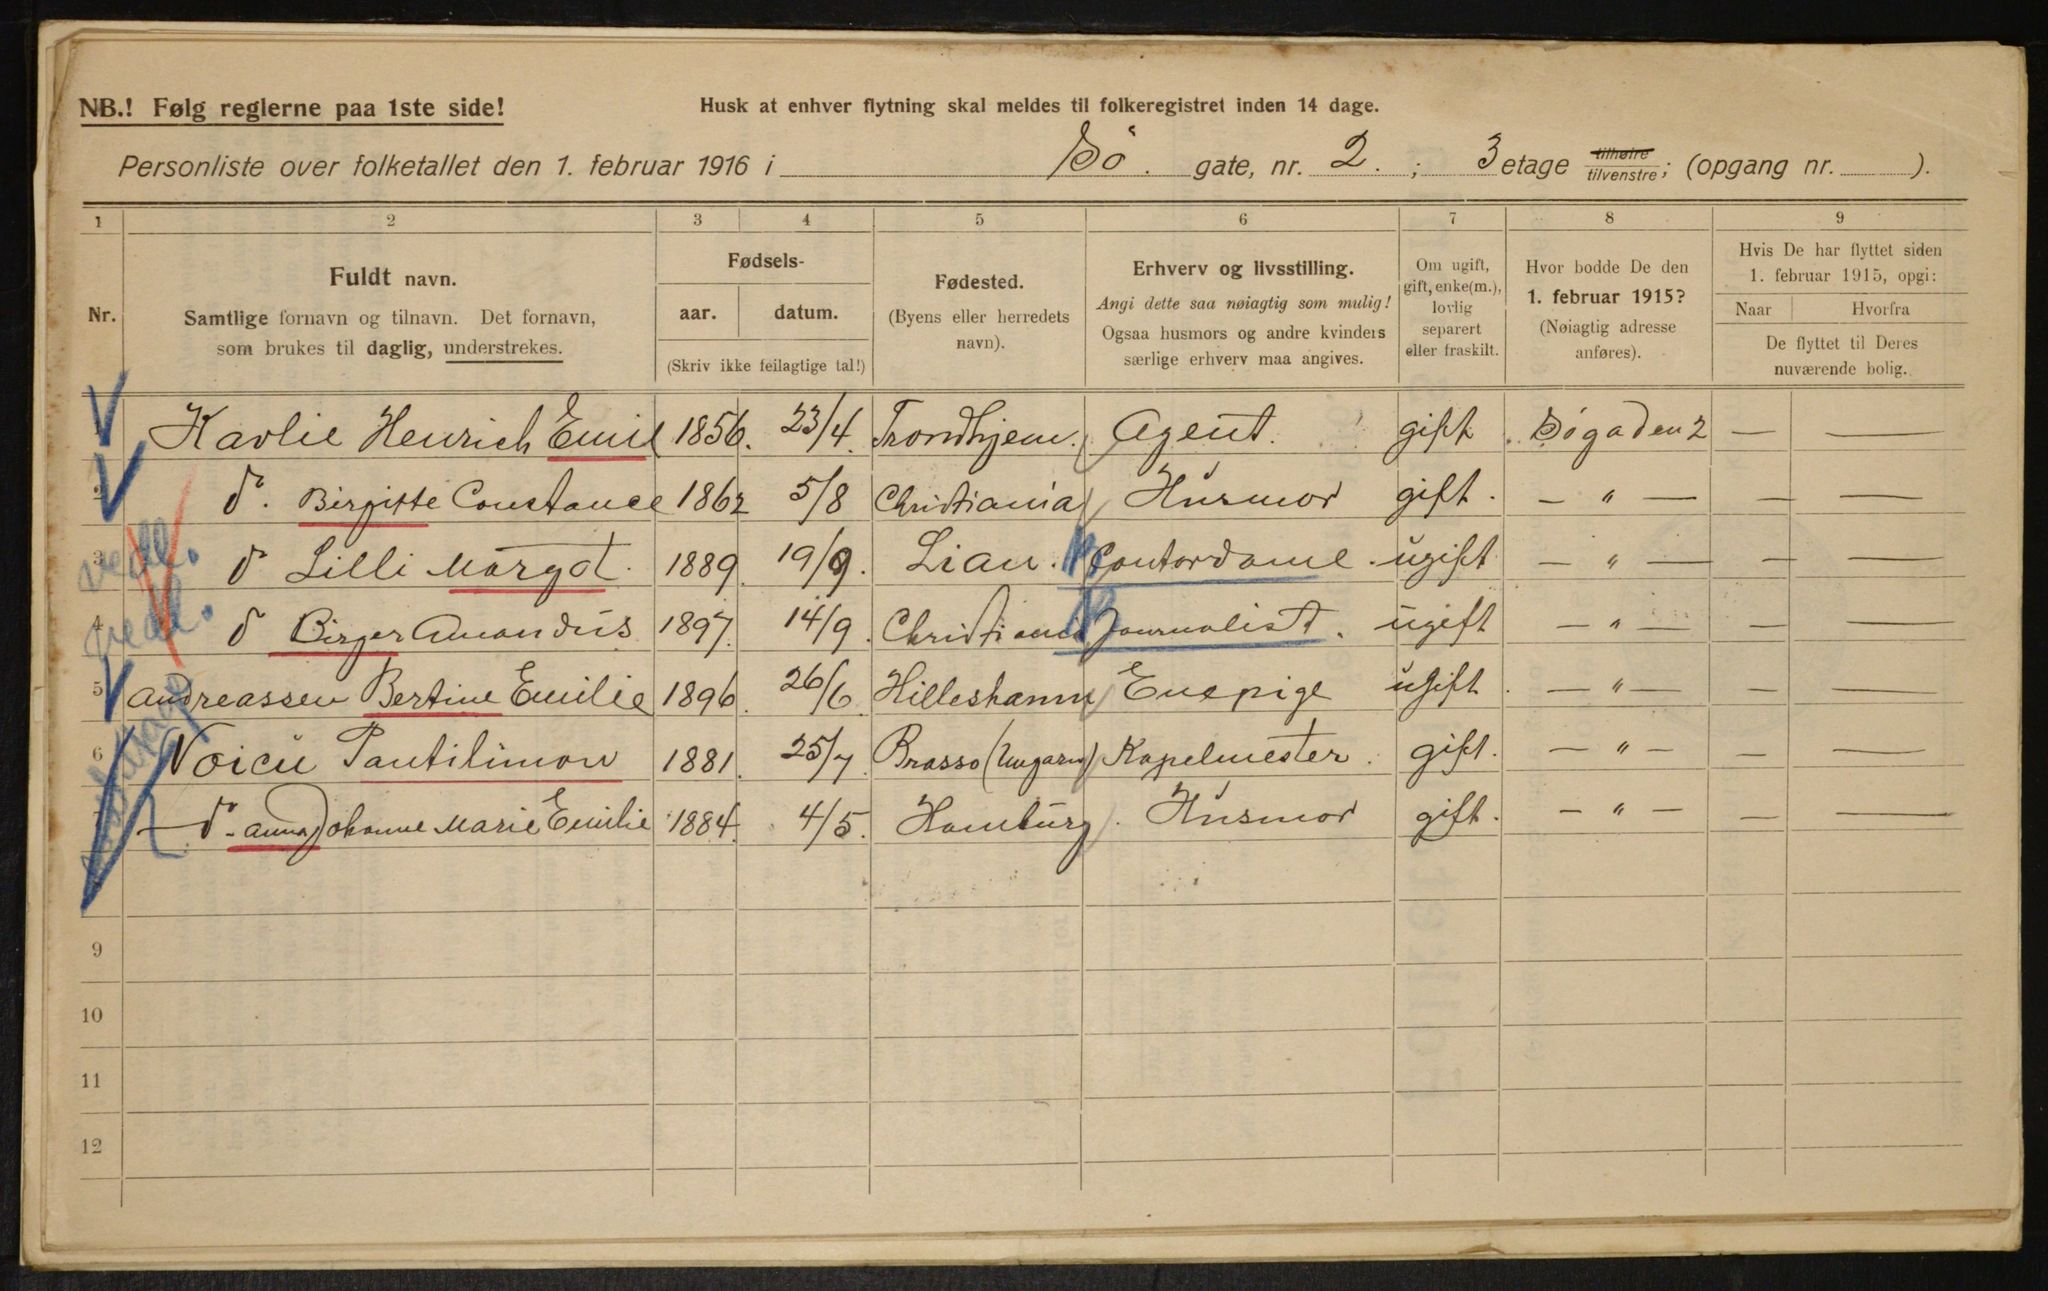 NB.! Følg reglerne paa 1ste side!
Husk at enhver flytning skal meldes til folkeregistret inden 14 dage.
Personliste over folketallet den 1. februar 1916 i Bö. gate, nr. 2. ; 3 etage tilhøire tilvenstre; (opgang nr. ).
1 2 3 4 5 6 7 8 9
Nr.
Fuldt navn.
Samtlige fornavn og tilnavn. Det fornavn,
som brukes til daglig, understrekes.
Fødsels-
aar. datum.
(Skriv ikke feilagtige tal!)
Fødested.
(Byens eller herredets
navn).
Erhverv og livsstilling.
Angi dette saa nøiagtig som mulig!
Ogsaa husmors og andre kvinders
særlige erhverv maa angives.
Om ugift,
gift, enke(m.),
lovlig
separert
eller fraskilt.
Hvor bodde De den
1. februar 1915?
(Nøiagtig adresse
anføres).
Hvis De har flyttet siden
1. februar 1915, opgi:
Naar Hvorfra
De flyttet til Deres
nuværende bolig.
Kavlie Henrich Emil 1856. 23/4. Trondhjem. Agent. gift. Bógaden 2 — —
2 do. Birgitte Constance 1862 5/8 Christiania Húsmor gift. — " — — —
3 do Lilli Margot. 1889. 19/9. Lian. Contordame. ugift — " — — —
4 do Birger Amandús 1897. 14/9. Christiania Journalist. ugift — " — — —
5 Andreassen Bertine Emilie 1896. 26/6. Hilleshamn Enepige ugift. — " — — —
6 Voicú Pantilimon 1881. 25/7. Brasso (Ungarn) Kapelmester. gift. — " — — —
do. Anna Johanne Marie Emilie 1884. 4/5. Hamburg. Húsmor gift. — " — — —
9
10
11
12